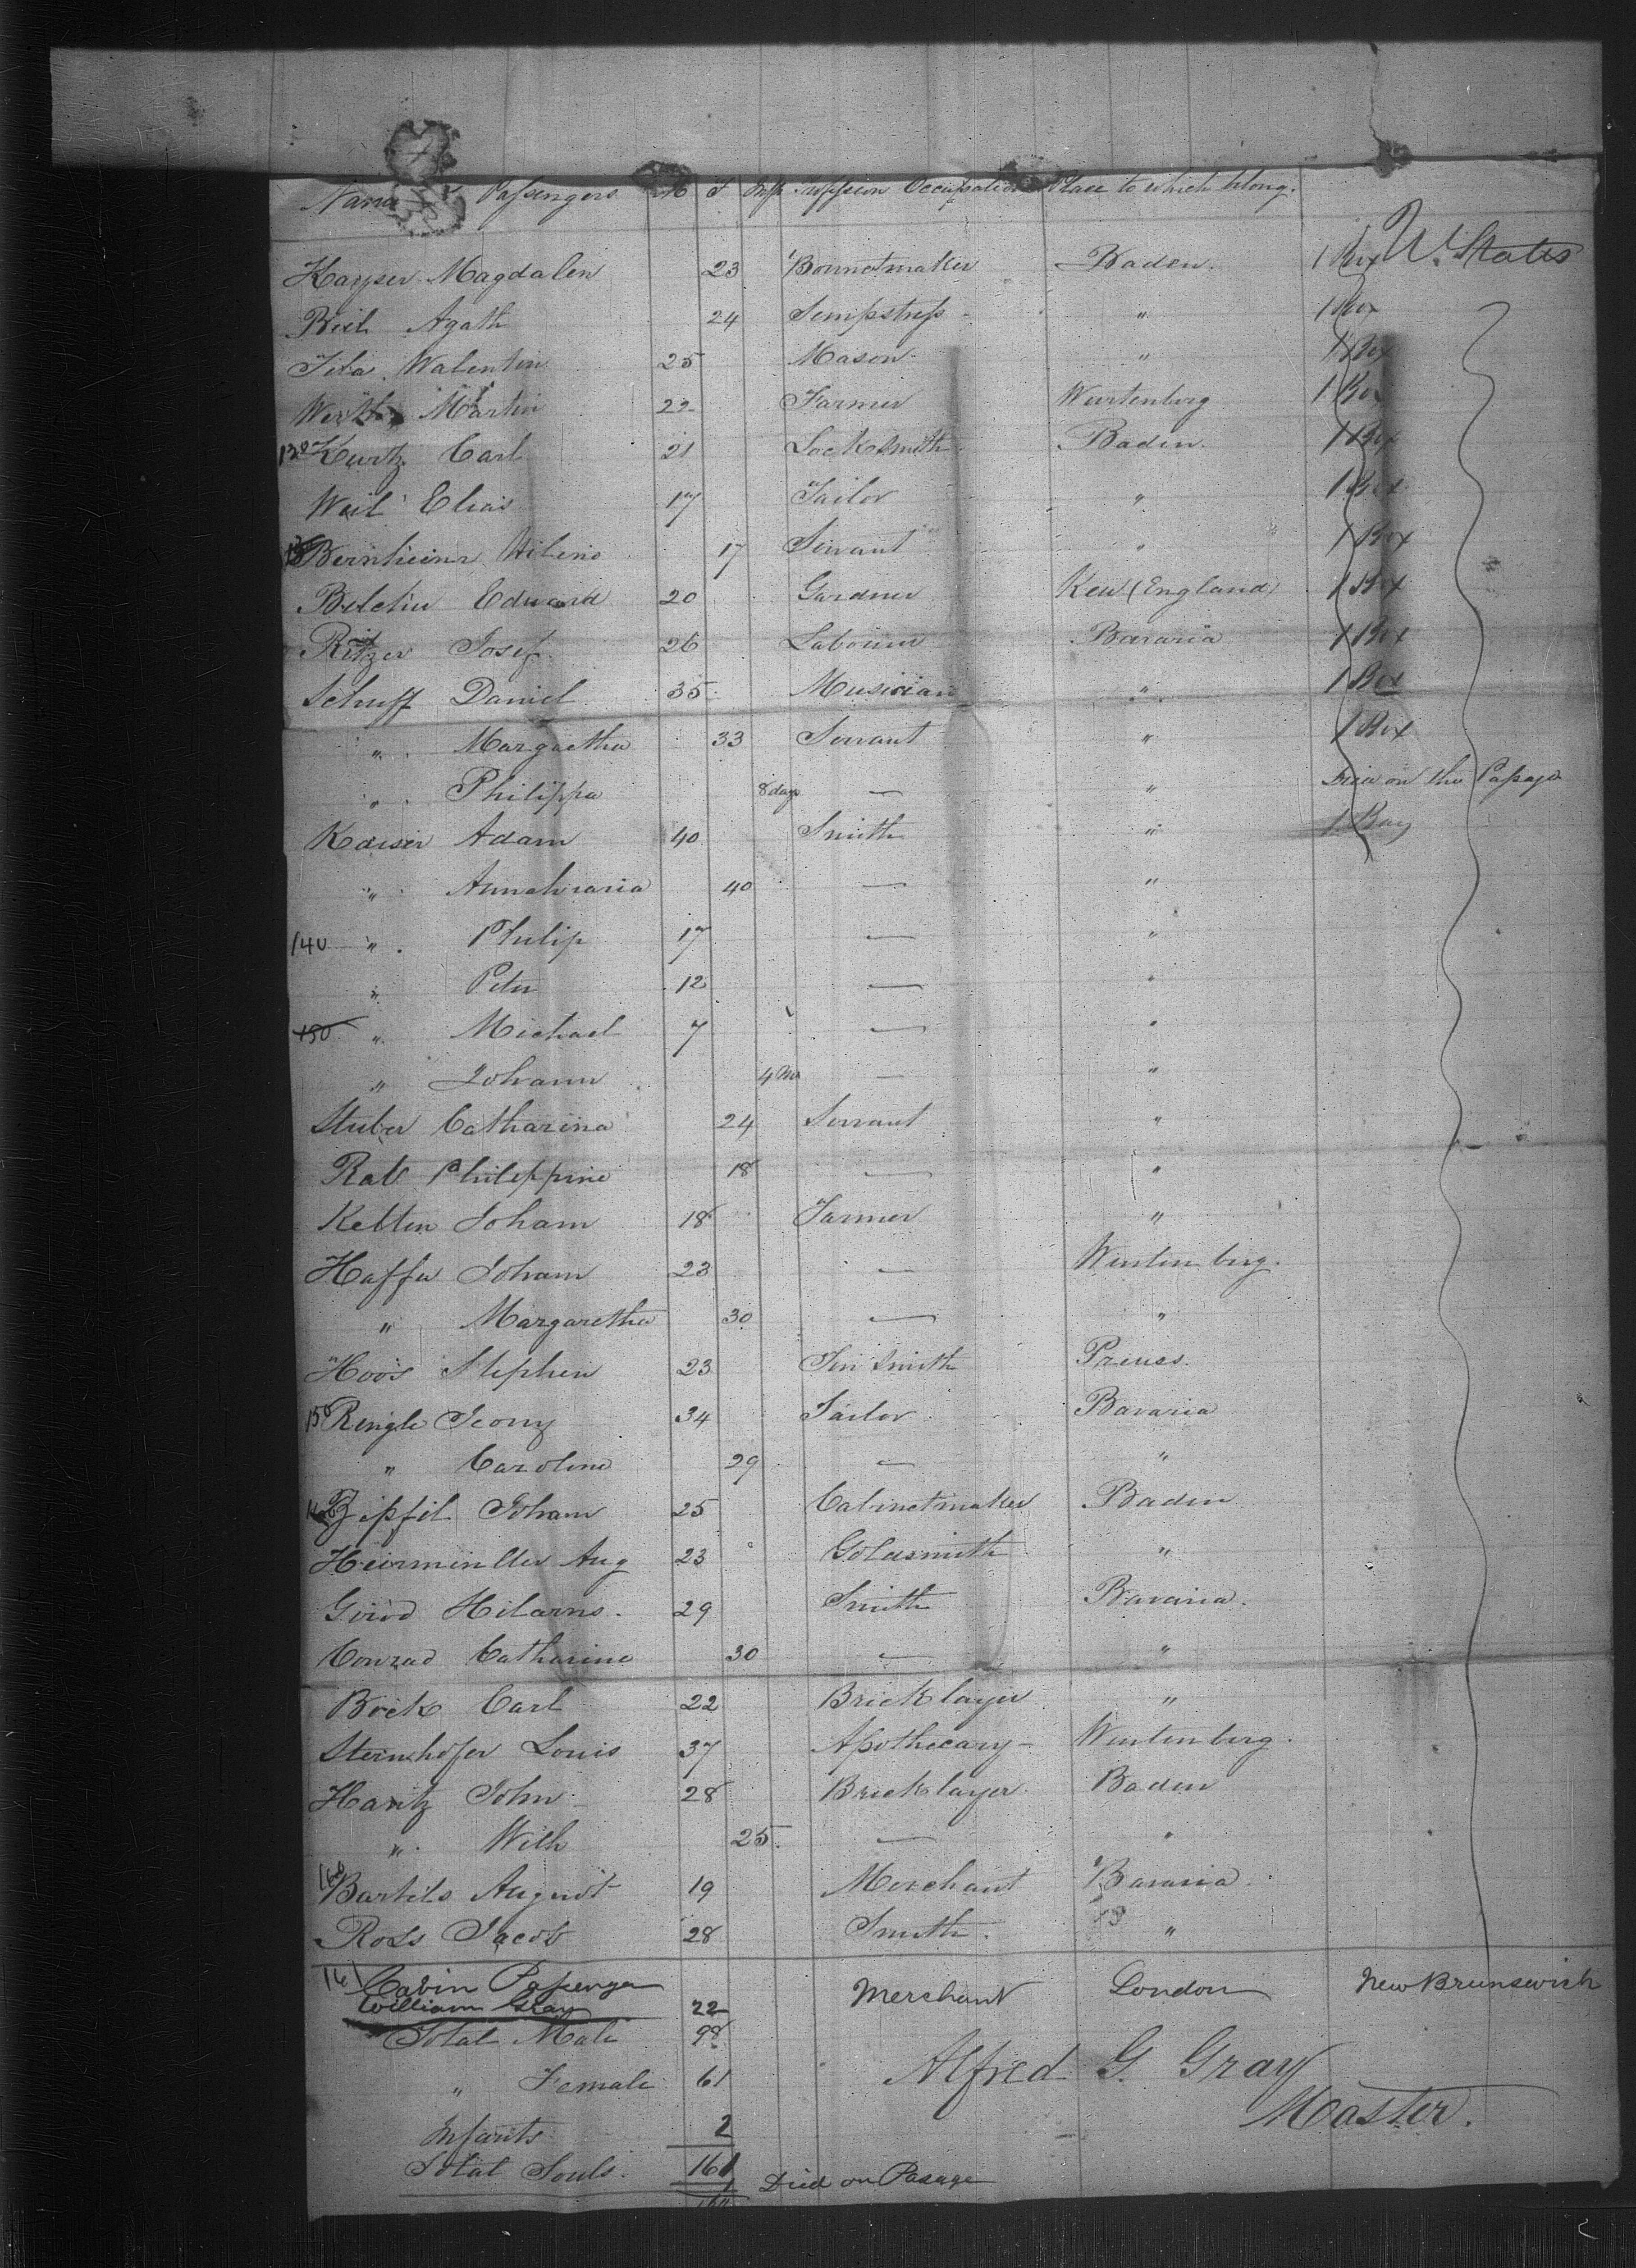 Name Passengers M F Inf Profession Occupation Place to which belong.
Kayser Magdalen 23 Bonnetmaker Baden. 1 Box U. States
Beil Agath 24 Sempstress " 1 Box
Walentin 25 Mason " 1 Box
Martin 22 Farmer Wurtenberg 1 Box
130 Kurtz Carl 21 Locksmith Baden. 1 Box
Weil Elias 17 Tailor " 1 Box
Bernheimr 17 Servant " 1 Box
Belcher Edward 20 Gardner Kew (England) 1 Box
Ritzer Josef 26 Labourer Bavaria 1 Box
Schuff Daniel 35 Musician " 1 Box
" Margaetha 33 Servant " 1 Box
" Philippa 8 days — " on the Passage
Kaiser Adam 40 Smith " 1 Bag
" Annamaria 40 — "
140 " Philip 17 — "
" Peter 12 — "
150 " Michael 7 — "
" Johann 4 Mo — "
Stuber Catharina 24 Servant "
Rab Philippine 18 — "
Johann 18 Farmer "
Haffer Johann 23 — Wurtenberg.
" Margaretha 30 — "
Hoos Stephen 23 Tin Smith Preuss.
150 Ringle Jeorg 34 Tailor Bavaria
" Caroline 29 — "
Zipfil Johann 25 Cabinetmaker Baden
Aug 23 Goldsmith "
Girod Hilarns. 29 Smith Bavaria.
Conrad Catharine 30 — "
Bock Carl 22 Bricklayer "
Steinhofer Louis 37 Apothecary Wurtenberg.
Hantz John 28 Bricklayer Baden
" Wilh 25 — "
160 Bartils August 19 Merchant Bavaria
Ross Jacob 28 Smith. "
161 Cabin Passenger
William Gray 22 Merchant London New Brunswick
Total Male 98
" Female 61 Alfred G. Gray
Infants 2 Master.
Total Souls. 161
1 Died on Passage
160